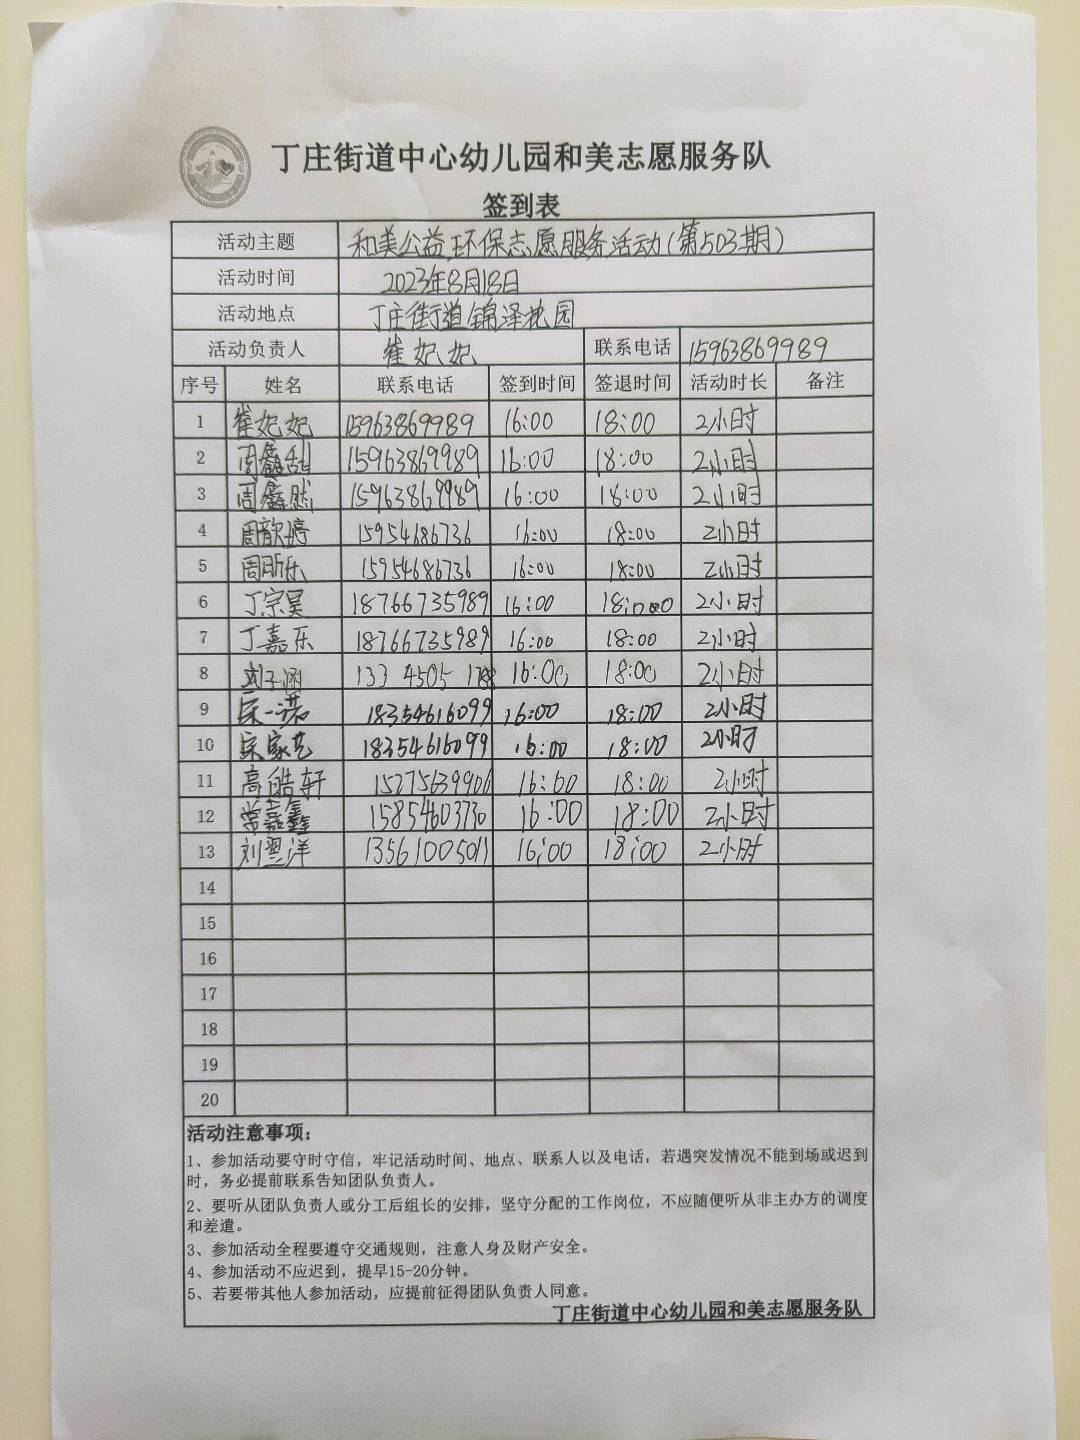 丁庄街道中心幼儿园和美志愿服务队
签到表
活动主题 和美公益,环保志愿服务活动(第503期)
活动时间 2023年8月18日
活动地点 丁庄街道锦泽花园
活动负责人 崔妃妃 联系电话 15963869989
序号 姓名 联系电话 签到时间 签退时间 活动时长 备注
1 崔妃妃 15963869989 16:00 18:00 2小时
2 周鑫甜 15963869989 16:00 18:00 2小时
3 周鑫然 15963869989 16:00 18:00 2小时
4 周歆婷 15954686736 16:00 18:00 2小时
5 周昕乐 15954686736 16:00 18:00 2小时
6 丁宗昊 18766735989 16:00 2小时
7 丁嘉乐 18766735989 16:00 18:00 2小时
8 刘子涵 133 4505 16:00 18:00 2小时
9 宋一诺 18354616099 16:00 18:00 2小时
10 宋家艺 18354616099 16:00 18:00 2小时
11 高皓轩 15275639906 16:00 18:00 2小时
12 常嘉鑫 15854603730 16:00 18:00 2小时
13 刘翌洋 13561005011 16:00 18:00 2小时
14
15
16
17
18
19
20
活动注意事项：
1、参加活动要守时守信，牢记活动时间、地点、联系人以及电话，若遇突发情况不能到场或迟到
时，务必提前联系告知团队负责人。
2、要听从团队负责人或分工后组长的安排，坚守分配的工作岗位，不应随便听从非主办方的调度
和差遣。
3、参加活动全程要遵守交通规则，注意人身及财产安全。
4、参加活动不应迟到，提早15-20分钟。
5、若要带其他人参加活动，应提前征得团队负责人同意。
丁庄街道中心幼儿园和美志愿服务队